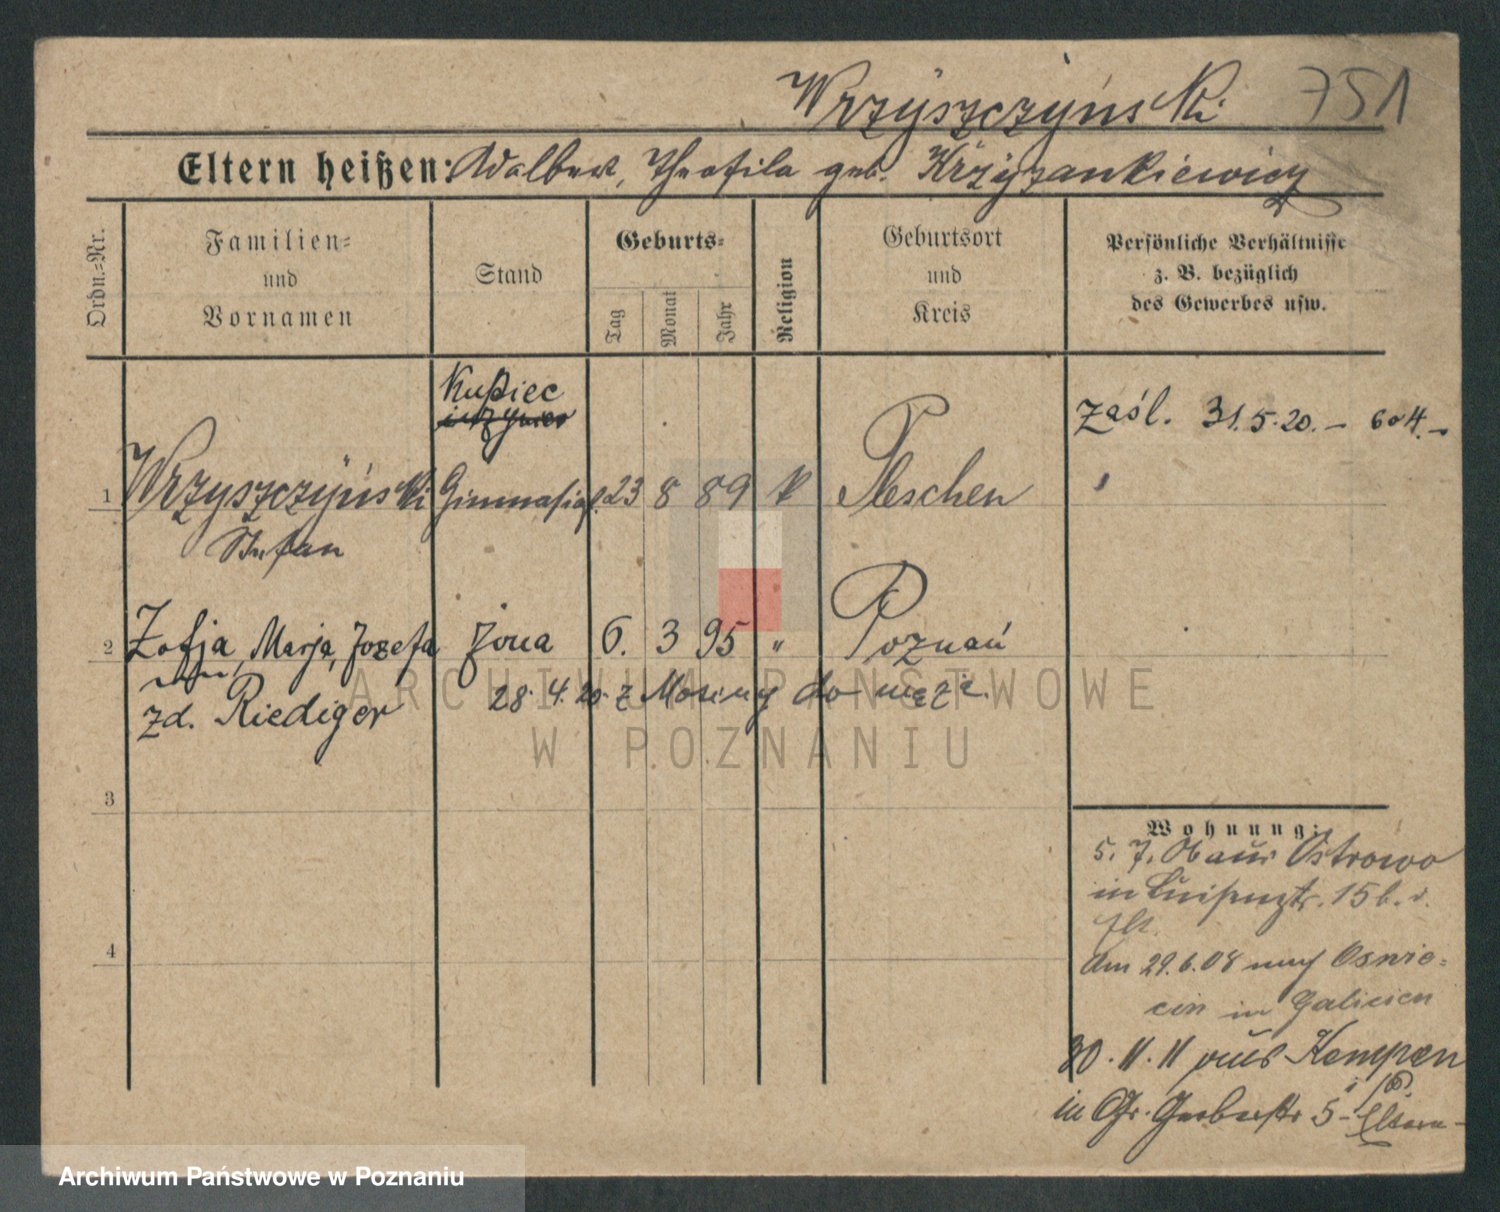 Wrzyszczyński 751
Eltern heißen: Adalbert, Theofila geb. Krzyzankiewicz
Ordn.=Nr.
Familien=
und
Vornamen
Stand
Geburts=
Tag
Monat
Jahr
Religion
Geburtsort
und
Kreis
Persönliche Verhältnisse
z. B. bezüglich
des Gewerbes usw.
Kupiec
zaśl. 31.5.20.- 604.-
1 Wrzyszczyński Gimnasias. 23 8 89 k Pleschen
Stefan
2 Zofja, Marja, Jozefa żona 6. 3 95 " Poznań
28. 4. 20. z Mosiny do męża.
zd. Riediger
3
4
Wohnung:
5. 7. 06 aus Ostrowo
in Luisenstr. 15 b. d.
Elt.
Am 29.6.08 nach Oswie=
cin in Galicien
30. 11. 11 aus Kempen
in Gr. Gerberstr 5 Eltern
ARCHIWUM PAŃSTWOWE
W POZNANIU
Archiwum Państwowe w Poznaniu